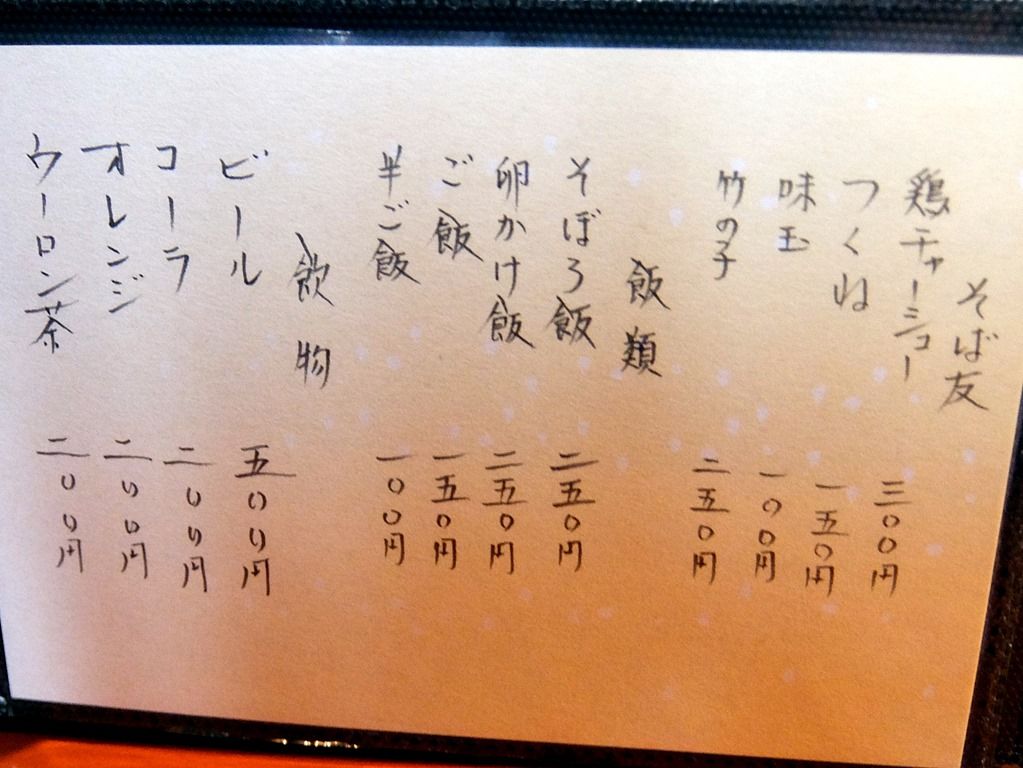 そば友
鶏チャーシュー 三〇〇円
つくね 一五〇円
味玉 一〇〇円
竹の子 二五〇円
飯類
そぼろ飯 二五〇円
卵かけ飯 二五〇円
ご飯 一五〇円
半ご飯 一〇〇円
飲物
ビール 五〇〇円
コーラ 二〇〇円
オレンジ 二〇〇円
ウーロン茶 二〇〇円